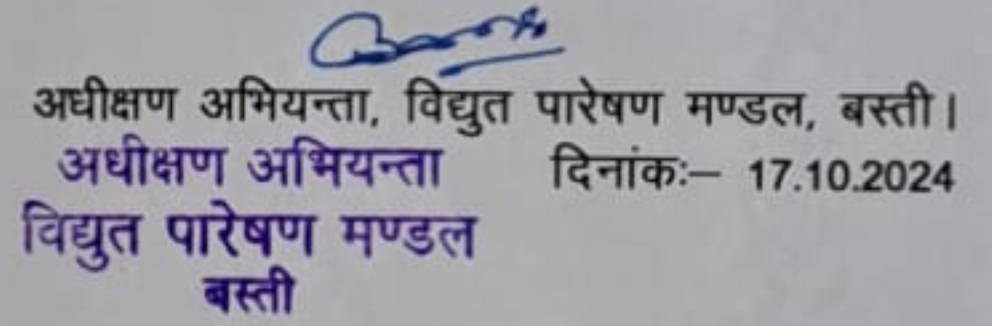 अधीक्षण अभियन्ता, विद्युत पारेषण मण्डल, बस्ती।
अधीक्षण अभियन्ता
दिनांकः– 17.10.2024
विद्युत पारेषण मण्डल
बस्ती